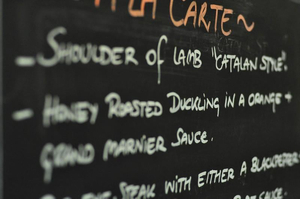 LA CARTE ~
- SHOULDER OF LAMB "CATALAN STYLE".
- HONEY ROASTED DUCKLING IN A ORANGE +
GRAND MARNIER SAUCE.
STEAK WITH EITHER A BLACKPEPPER
SAUCE.